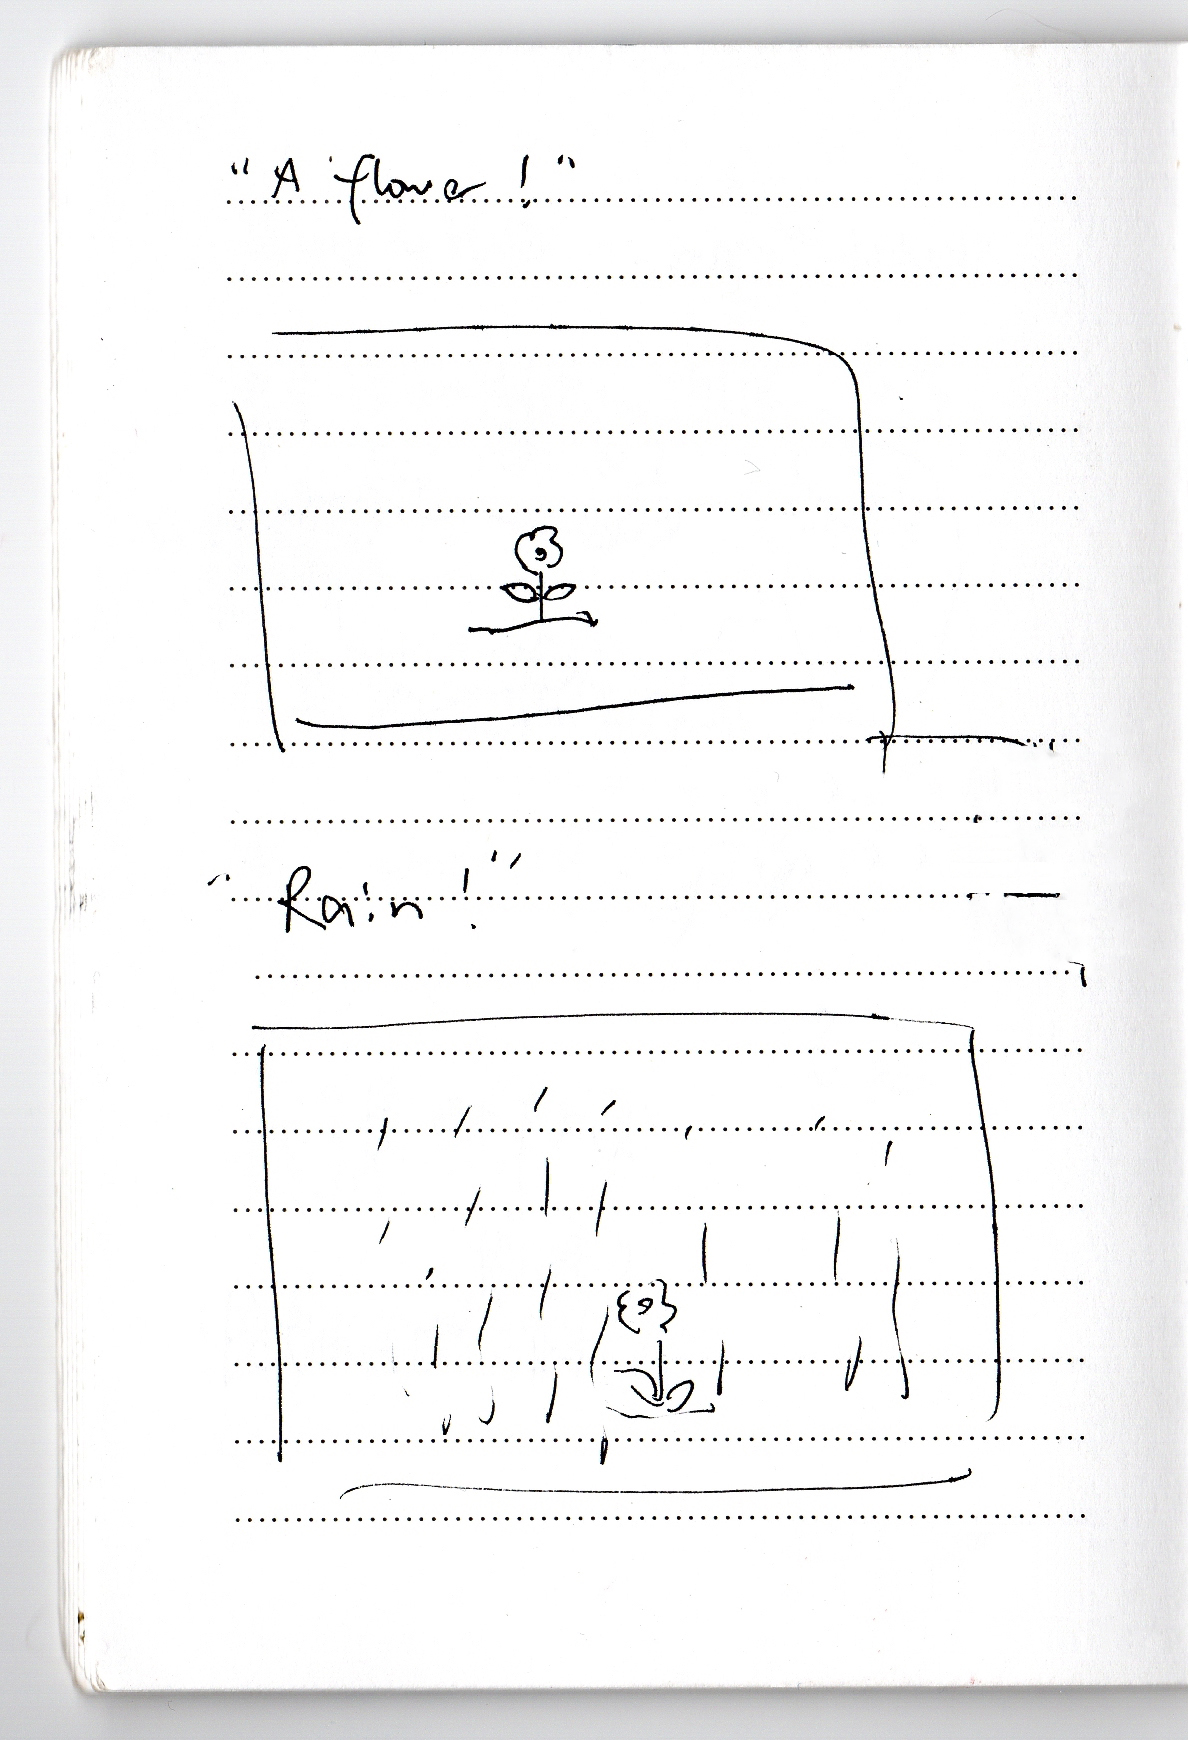 "A flower!"
"Rain!"